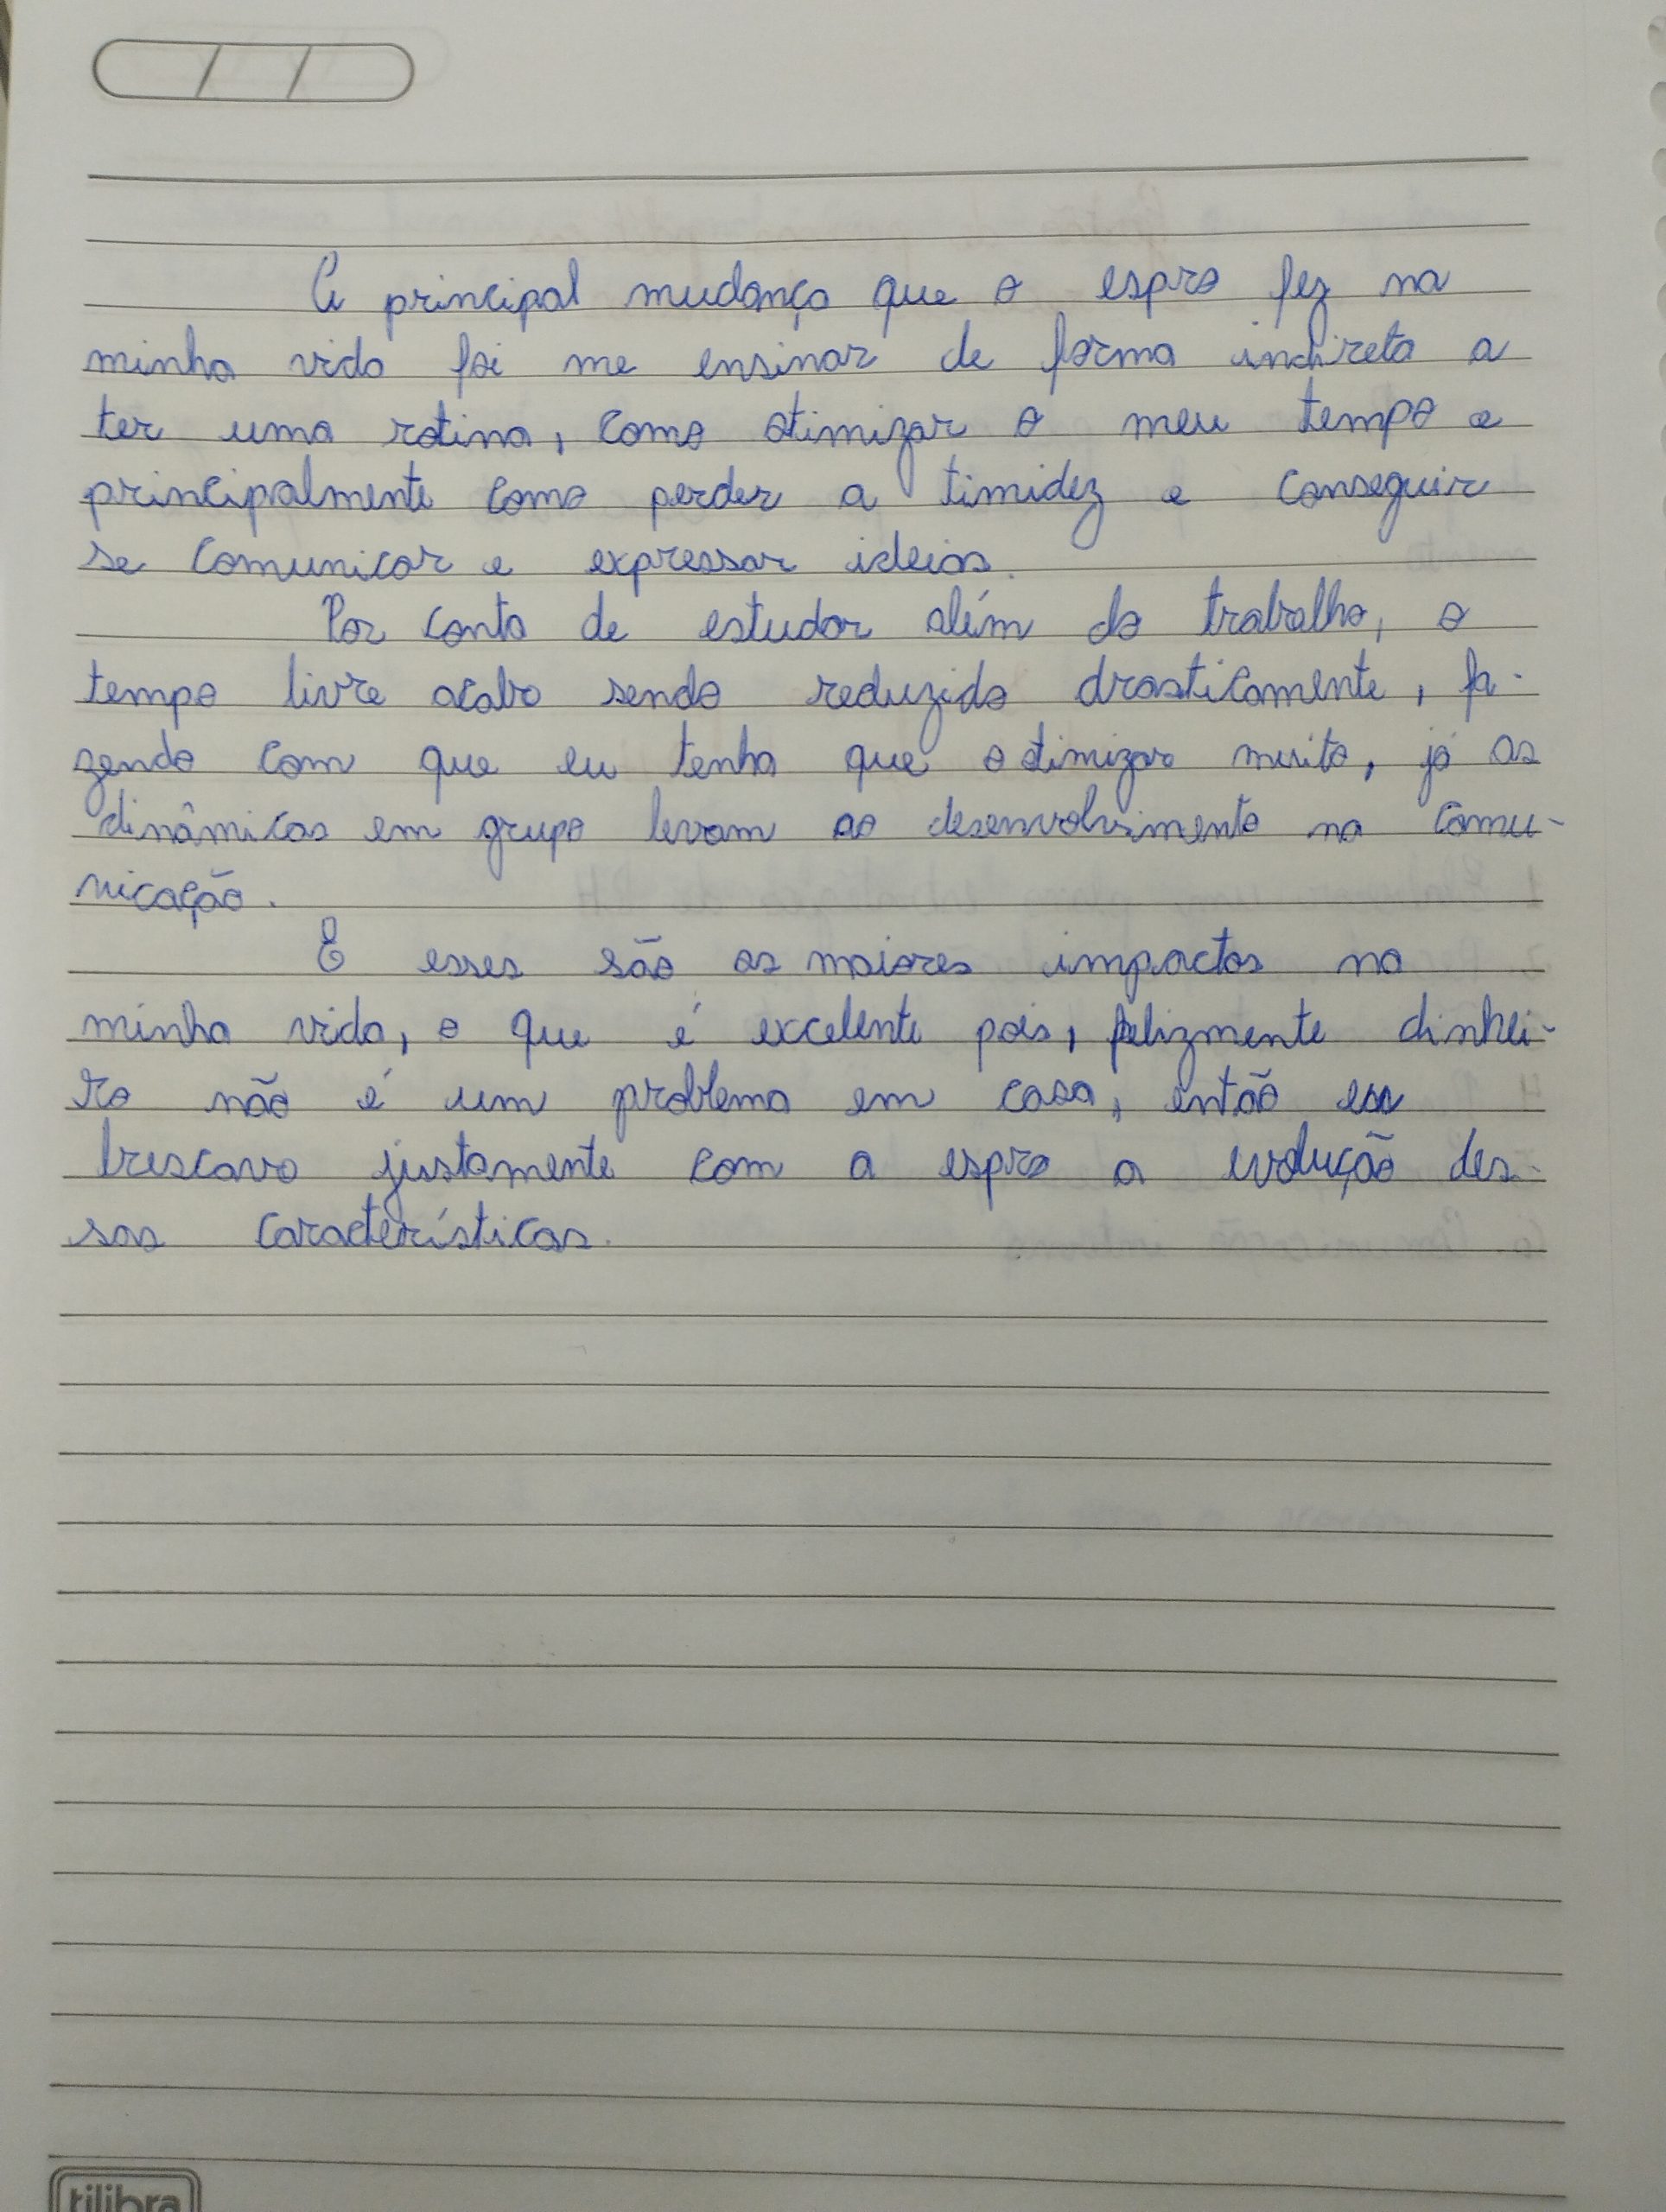 A principal mudança que o espro fez na
minha vida foi me ensinar de forma indireta a
ter uma rotina, como otimizar o meu tempo e
principalmente como perder a timidez e conseguir
se comunicar e expressar ideias.
Por conta de estudar além do trabalho, o
tempo livre acaba sendo reduzido drasticamente, fa-
zendo com que eu tenha que otimizar muito, já as
dinâmicas em grupo levam ao desenvolvimento na comu-
nicação.
E esses são os maiores impactos na
minha vida, o que é excelente pois, felizmente dinhei-
ro não é um problema em casa, então eu
buscava justamente com a espro a evolução des-
sas características.
tilibra